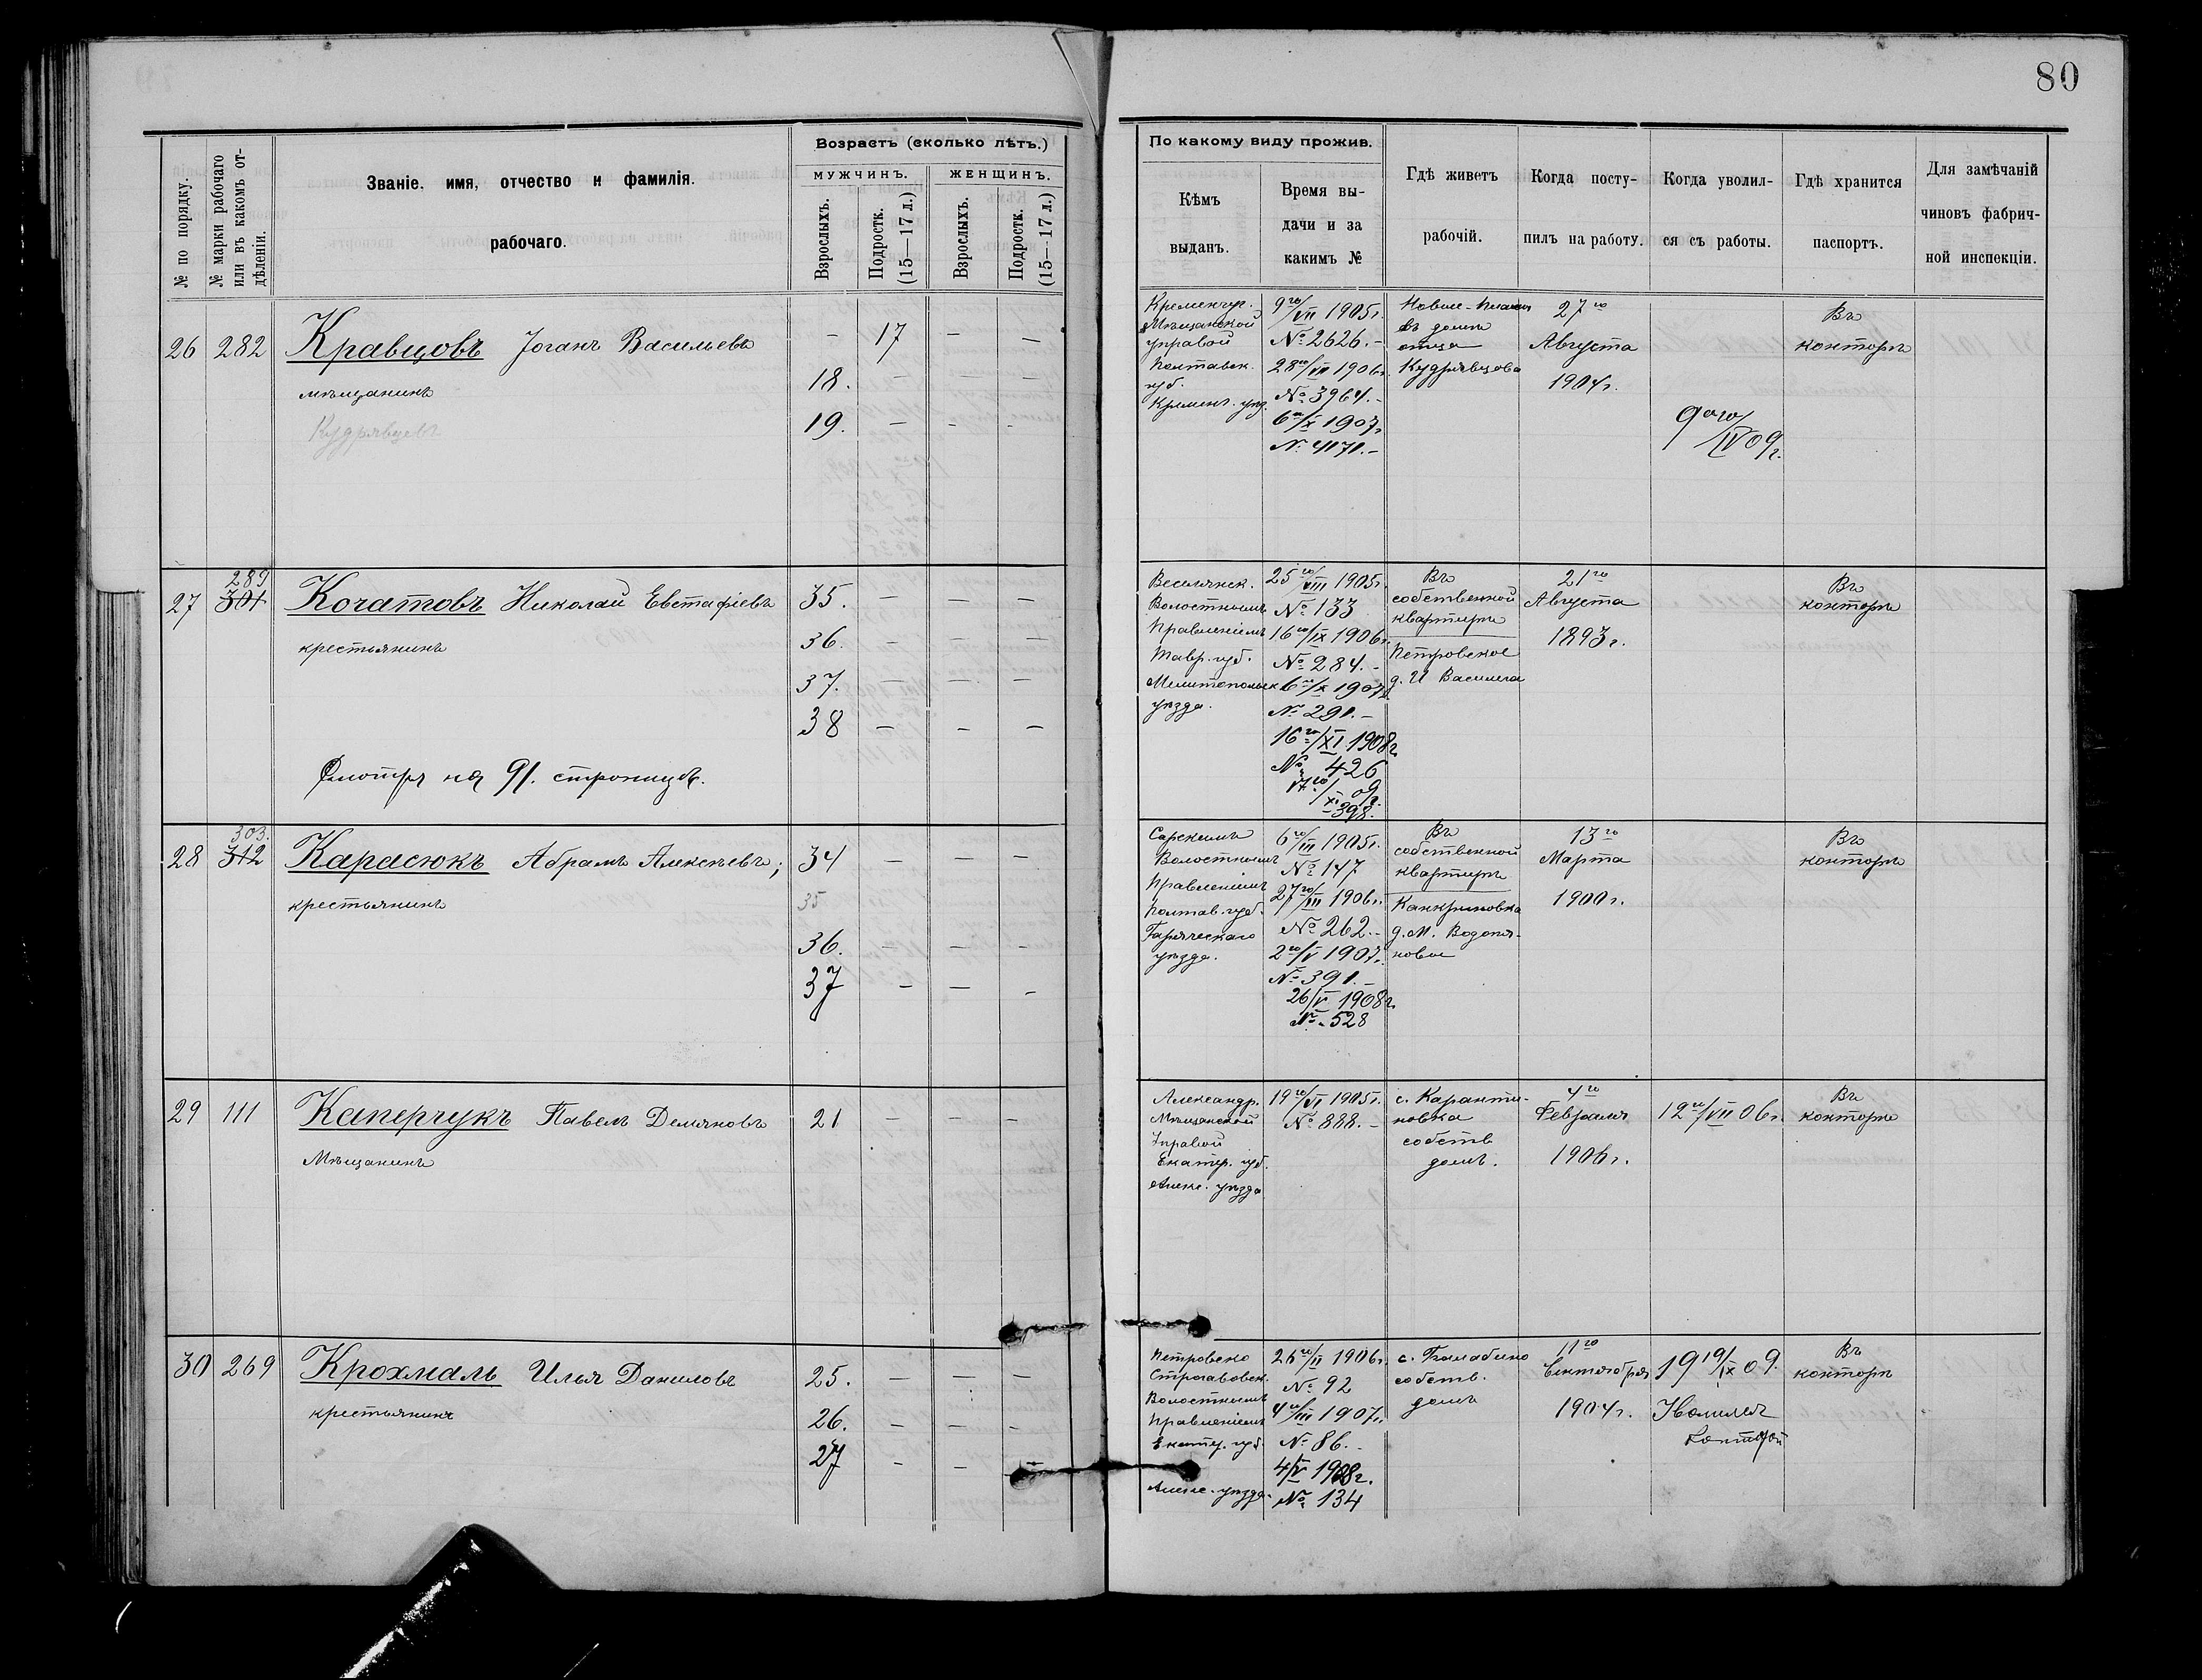 80
№ по порядку.
№ марки рабочаго или въ какомъ отдѣленіи.
Званіе, имя, отчество и фамилія.
рабочаго.
Возрастъ (сколько лѣтъ.)
МУЖЧИНЪ. ЖЕНЩИНЪ.
Взрослыхъ.
Подростк. (15—17 л.)
Взрослыхъ.
Подростк. (15—17 л.)
По какому виду прожив.
Кѣмъ
выданъ.
Время вы-
дачи и за
какимъ №
Гдѣ живетъ
рабочій.
Когда посту-
пилъ на работу.
Когда уволил-
ся съ работы.
Гдѣ хранится
паспортъ.
Для замѣчаній
чиновъ фабрич-
ной инспекціи.
26 282 Кравцовъ Іоганъ Васильевъ — 17 — —
мѣщанинъ 18. — — —
Кудрявцевъ 19. — - -
Кременчуг.
Мѣщанской
управой
Полтавск.
губ.
Кремен. уѣз.
9го/VII 1905г.
№ 2626.-
28го/VII 1906г.
№ 3964.-
6го/X 1907г.
№ 4171.-
въ домѣ
отца
Кудрявцова
27го
Августа
1904г.
9ого/IV 09г.
Въ
конторѣ
27 289
301 Кочатовъ Николай Евстафіевъ 35. — — —
крестьянинъ 36. — — —
37. — — —
38 — - —
Смотри на 91. страницѣ.
Веселянск.
Волостнымъ
Правленіемъ
Тавр. губ.
Мелитопольск
уѣзда.
25го/VIII 1905г.
№ 133
16го/IX 1906г.
№ 284.-
6го/X 1907г.
№ 291.-
16го/XI 1908г.
№ 426
17го/XI 09г.
-398.
Въ
собственной
квартирѣ
Петровское
д. И Василега
21го
Августа
1893г.
Въ
конторѣ
28 303.
312 Карасюкъ Абрамъ Алексѣевъ; 34 — — —
крестьянинъ 35
36. — — —
37 — — -
Сарскимъ
Волостнымъ
Правленіемъ
Полтав. губ.
Гадяческаго
уѣзда.
6го/III 1905г.
№ 147
27го/III 1906г.
№ 262.-
2го/V 1907г.
№ 391.-
26/V 1908г.
№ 528
Въ
собственной
квартирѣ
Канкриновка
д. М. Водопя-
новое
13го
Марта
1900г.
Въ
конторѣ
29 111 Каперчукъ Павелъ Демяновъ 21 — — —
Мѣщанинъ
Александр.
Мѣщанской
Управой
Екатер. губ.
Алекс. уѣзда
19го/VI 1905г.
№ 888.-
с. Каранти-
новка
собств
домъ.
4го
Февраля
1906г.
12го/VII 06г.
Въ
конторѣ
30 269 Крохмаль Илья Даниловъ 25. — — —
крестьянинъ 26. — — -
27 - — —
Петровско
Волостнымъ
Правленіемъ
Екатер. губ.
Алекс. уѣзда.
26го/II 1906г.
№ 92
4го/III 1907г.
№ 86.-
4/V 1908г.
№ 134
с. Балабино
собств.
домъ
11го
Сентября
1904г.
19 19/IX 09.
Конторой
Въ
конторѣ